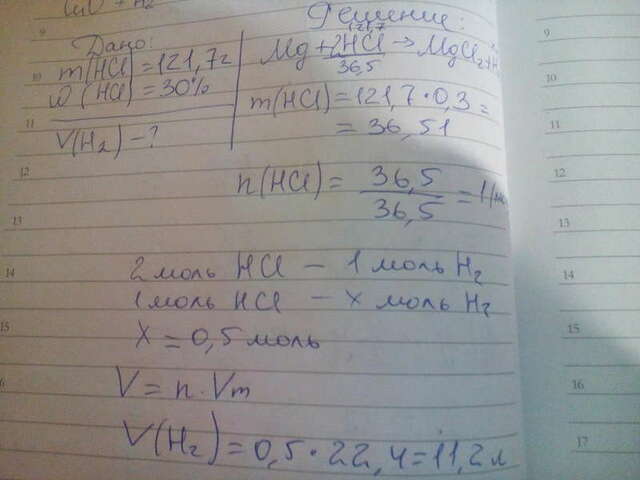 CuO + H₂
Дано:
m(HCl) = 121,7г
ω(HCl) = 30%
V(H₂) - ?
Решение:
121,7
Mg + 2HCl → MgCl₂ + H
36,5
m(HCl) = 121,7 · 0,3 =
= 36,51
n(HCl) = 36,5 / 36,5 = 1 мо
2 моль HCl — 1 моль H₂
1 моль HCl — x моль H₂
X = 0,5 моль
V = n · Vm
V(H₂) = 0,5 · 22,4 = 11,2 л
9
10
11
12
13
14
15
6
9
10
11
12
13
14
15
16
17